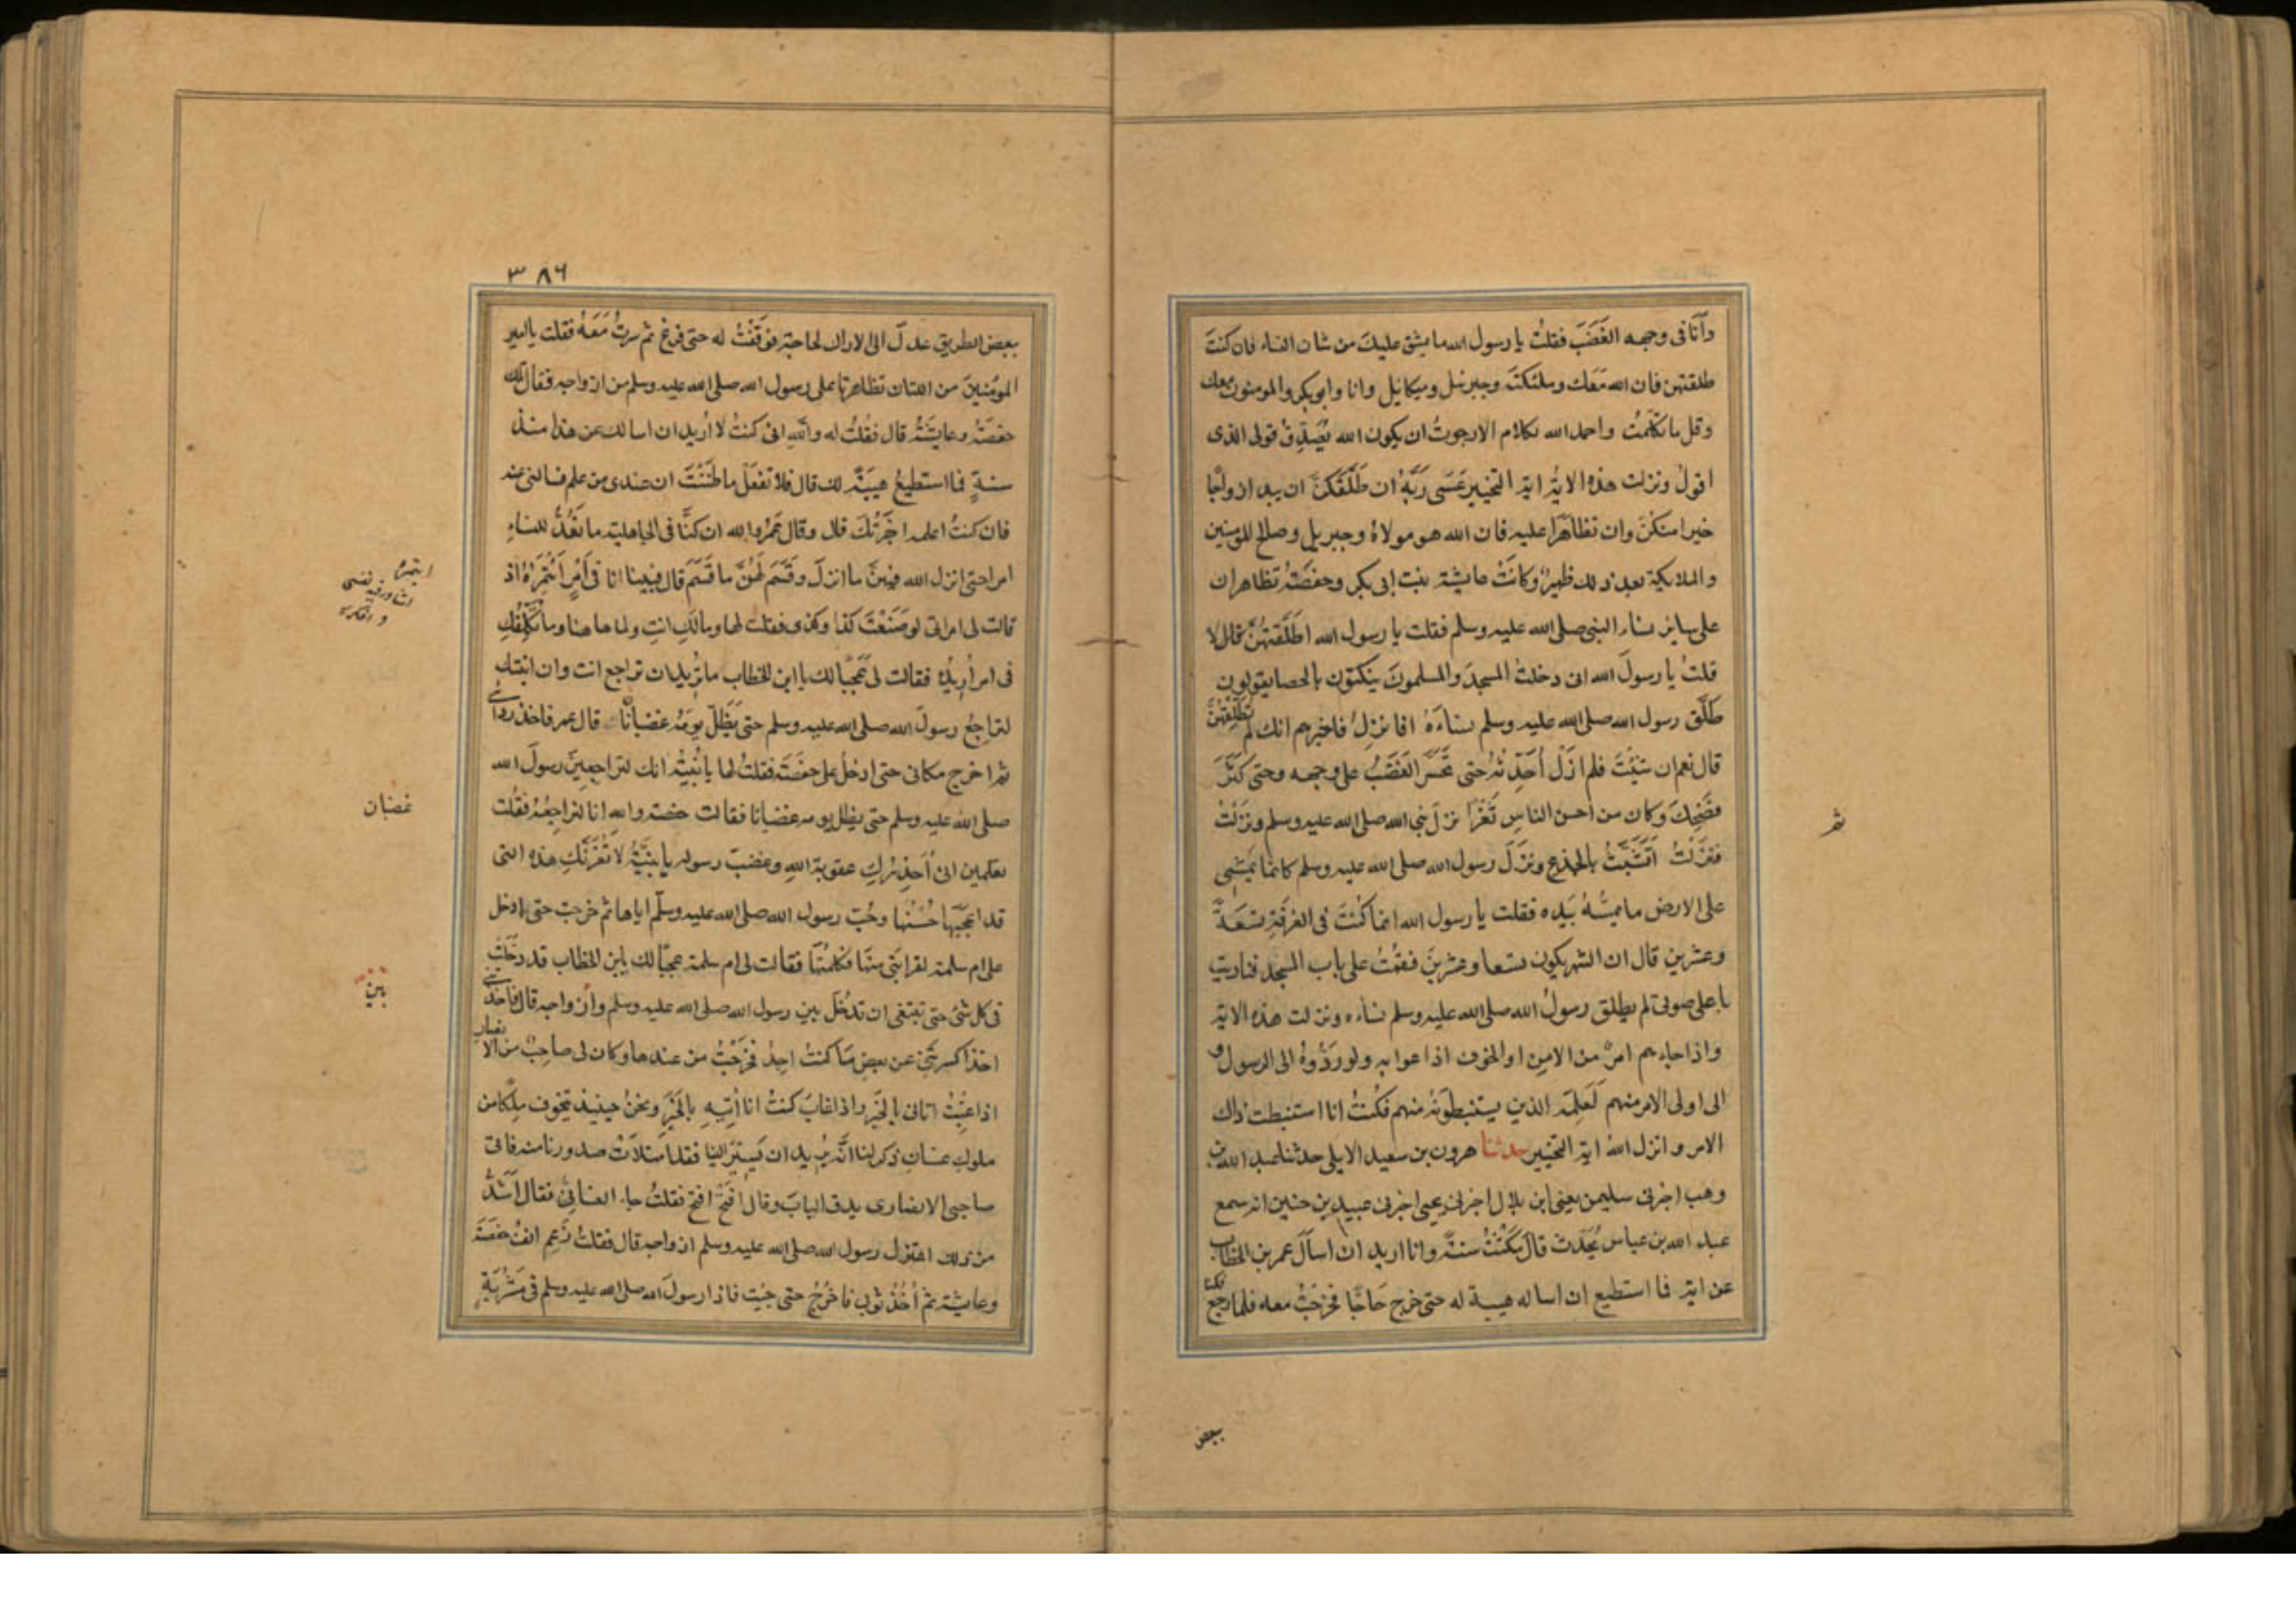 وأنا فى وجهه الغَضَبَ فقلتُ يا رسول الله ما يشق عليكَ من شان النساء فان كنتَ
طلقتهن فان الله مَعَك وملئكتَه وجبرئيل وميكائيل وانا وابوبكر والمومنون معك
وقل ما تكلّمتُ واحمد الله بكلام الا رجوتُ ان يكون الله يُصَدِقُ قولى الذى
اقولُ ونزلت هذه الايةُ اية التخيير عَسَى رَبُّهُ ان طَلَّقَكنَّ ان يبدله ازواجًا
خيرا منكنَّ وان تظاهَرا عليه فان الله هو مولاهُ وجبريل وصالح المومنين
والملايكة بعد ذلك ظهيرٌ وكانَتْ عايشة بنت ابى بكر وحفصَةُ تظاهران
على ساير نساء النبى صلى الله عليه وسلم فقلت يا رسول الله اطَلَّقتهُنَّ قال لا
قلتُ يا رسولَ الله انى دخلتُ المسجدَ والمسلمونَ ينكتون بالحصا يقولون
طَلَّق رسول الله صلى الله عليه وسلم نساءَهُ افا نزلُ فاخبرهم انك لم تطلّقهُنَّ
قال نعم ان شئتَ فلم ازَلْ أُحَدِّثهُ حتى تَحَسَّرَ الغَضَبُ على وجهه وحتى كَشَّرَ
فضَحِكَ وكان من احسن الناسِ ثَغْرًا نزلَ نبى الله صلى الله عليه وسلم ونَزَلْتُ
ثم
فنَزَلْتُ اتَشَبَّثُ بالجذع ونَزَلَ رسول الله صلى الله عليه وسلم كانما يَمْشِى
على الارض ما يمسُّهُ بَيَدِه فقلت يا رسول الله انما كُنْتَ فى الغرفَةِ تسْعَةً
وعشرين قال ان الشهر يكون تسعا وعشرينَ فقُمْتُ على باب المسجد فناديت
باعلى صوتى لم يطلق رسولُ الله صلى الله عليه وسلم نساءه ونزلت هذه الاية
واذا جاءهم امرٌ من الامنِ او الخوف اذاعوا به ولو رَدُّوهُ الى الرسول و
الى اولى الامر منهم لَعَلِمَهُ الذين يستنبطونَهُ منهم فكُنْتُ انا استنبطت ذاك
الامر وانزل الله اية التخيير حدثنا هرون بن سعيد الايلى حدثنا عبد الله بن
وهب اخبرنى سليمن يعنى ابن بلال اخبرنى يحيى اخبرنى عبيد بن حنين انه سمع
عبد الله بن عباس يُحَدِّث قال مَكَثْتُ سنةً وانا اريد ان اسألَ عمر بن الخطاب
عن اية فما استطيع ان اساله هيبة له حتى خرج حَاجًّا فخرَجتُ معه فلما رجع فكنا
بعض
٣٨٦
ببعض الطريق عدلَ الى الاراك لحاجةٍ فوَقَفْتُ له حتى فرغ ثم سِرتُ مَعَهُ فقلت يا امير
المومنينَ من اللتان تظاهرتا على رسول الله صلى الله عليه وسلم من ازواجه فقال تلك
حفصَةُ وعايشَةُ قال فقُلتُ له واللهِ انى كنتُ لا اُريد ان اسالك عن هذا منذ
سنةٍ فما استطيعُ هيبَةً لك قال فلا تفعَلْ ما ظنَنْتَ ان عندى من علم فسالنى عنه
فان كنتُ اعلمه اخبَرْتُكَ قال وقال عُمرُ والله ان كنَّا فى الجاهلية ما نَعُدُّ للنساءِ
امرا حتى انزل الله فيهنّ ما انزلَ وقَسَمَ لَهُنَّ ما قَسَمَ قال فبينا انا فى اَمْرٍ اَئْتَمِرُهُ اذ
ائتمره
اشاور فيه نفسى
وافكر
قالت لى امراتى لو صَنَعْتَ كذا وكذا فقلت لها وما لَكِ انتِ ولما هاهنا وما تكَلُّفُكِ
فى امر اُريدُه فقالت لى عَجَبًا لك يا ابن الخطاب ما تُريد ان تراجع انت وان ابنتك
لتراجعُ رسولَ الله صلى الله عليه وسلم حتى يَظَلّ يومَهُ غضبانًا قال عمر فاخذ ردائى
ثم اخرج مكانى حتى ادخلُ على حفصَةَ فقلتُ لها يا بُنَيَّةُ انك لتراجعينَ رسولَ الله
صلى الله عليه وسلم حتى يظل يومه غضبانا فقالت حفصة والله انا لنراجِعُهُ فقُلت
غضبان
تعلمين انى اُحَذِّرُكِ عقوبةَ اللهِ وغضبَ رسوله يا بنيَّةُ لا تَغُرَّنَّكِ هذه التى
قد اعجَبَها حُسْنُها وحُبّ رسول الله صلى الله عليه وسلّم اياها ثم خرجت حتى ادخل
على ام سلمة لقرابَتى منها فكلَّمتُها فقالت لى ام سلمة عجبًا لك يا بن الخطاب قد دخَلْتَ
فى كل شئ حتى تبتغى ان تدْخُلَ بين رسول الله صلى الله عليه وسلم وازواجه قال فاخذتنى
بَيْنَ
اخذا كسرتنى عن بعضِ ما كنتُ اجِدُ فخرَجْتُ من عندها وكان لى صاحبٌ من الانصار
اذا غِبْتُ اتانى بالخَبَرِ واذا غابَ كنتُ انا اٰتيهِ بالخَبَرِ ونحنُ حينيذ نتخوف ملِكًا من
ملوكِ غسان ذُكر لنا انَّهُ يُريد ان يَسِيْرَ الينا فقد امتلأت صدورنا منه فاتى
صاحبى الانصارى يدق البابَ وقال افتَحْ افتح فقلتُ جاء الغسانىُّ فقال اَشَدُّ
من ذلك اعتزل رسول الله صلى الله عليه وسلم ازواجه قال فقلتُ رَغِمَ انفُ حفصَةَ
وعايشة ثم اٰخُذُ ثوبى فاخْرُجُ حتى جئت فاذا رسولَ الله صلى الله عليه وسلم فى مَشْرُبَةٍ